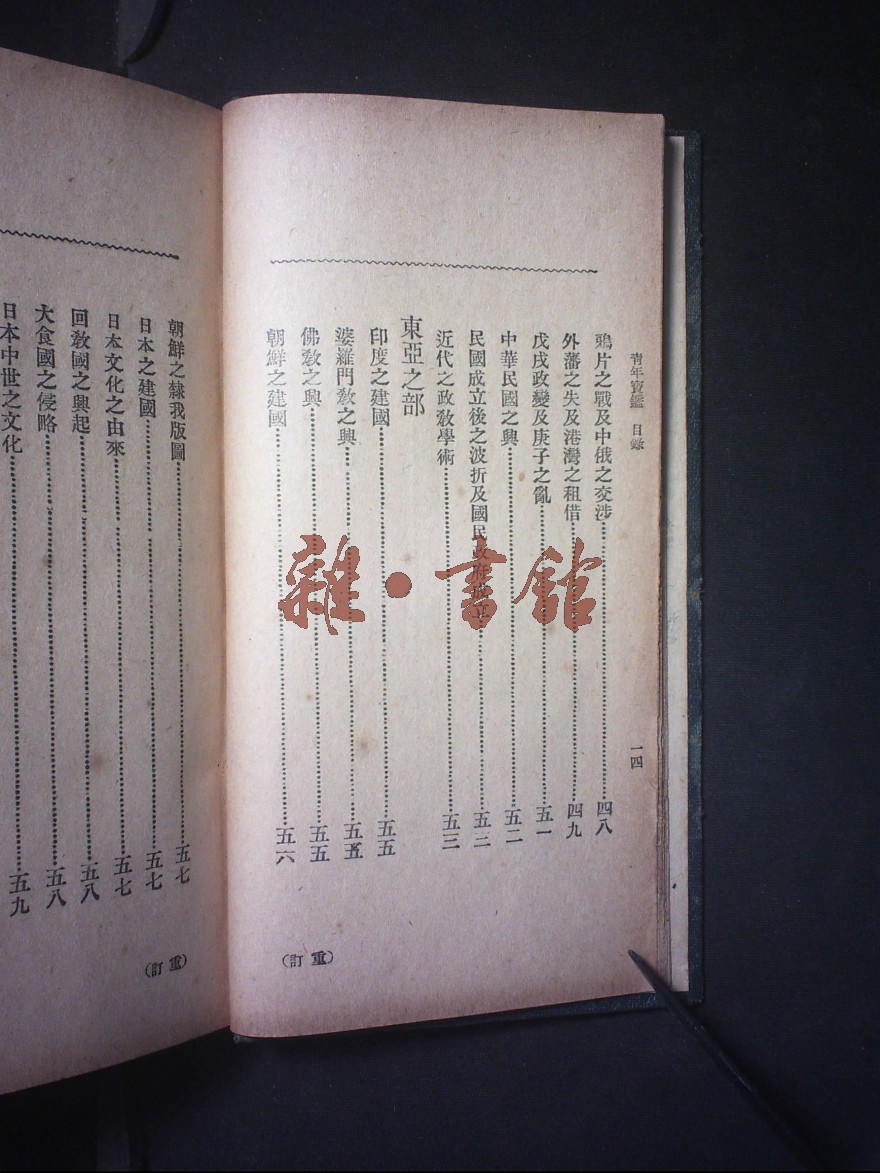 青年寶鑑 目錄 一四
鴉片之戰及中俄之交涉 四八
外藩之失及港灣之租借 四九
戊戌政變及庚子之亂 五一
中華民國之興 五二
民國成立後之波折及國民政府成立 五二
近代之政教學術 五三
東亞之部
印度之建國 五五
婆羅門教之興 五五
佛教之興 五五
朝鮮之建國 五六
(重訂)
朝鮮之隸我版圖 五七
日本之建國 五七
日本文化之由來 五七
回教國之興起 五八
大食國之侵略 五八
日本中世之文化 五九
(重訂)
雜·書館